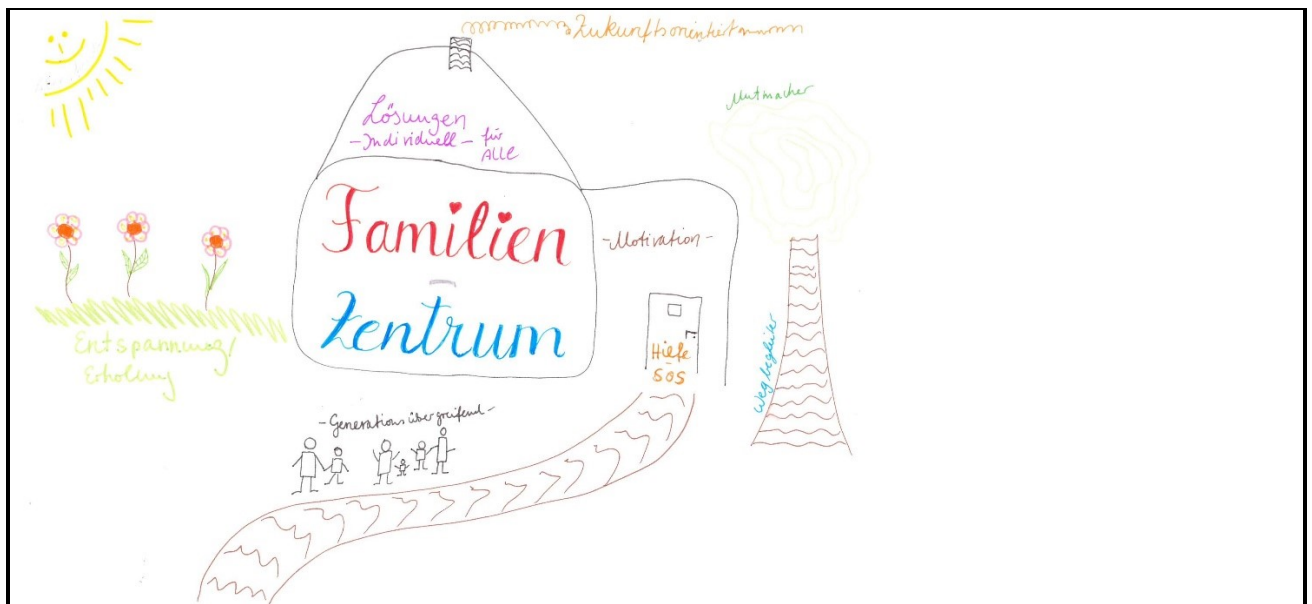 Zukunftsorientiert
Mutmacher
Lösungen
- Individuell - für
ALLE
Familien
-
Zentrum
- Motivation -
Hilfe
SOS
Wegbegleiter
Entspannung/
Erholung
- Generationsübergreifend -